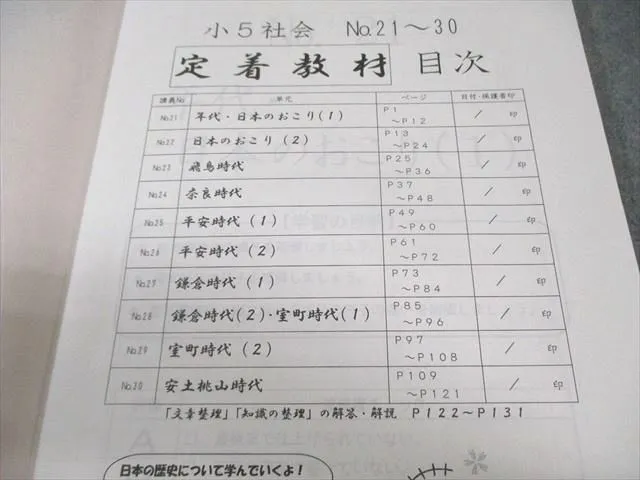 小5社会 No.21~30
定着教材 目次
講義No 単元 ページ 日付・保護者印
No.21 年代・日本のおこり(1) P1~P12 / 印
No.22 日本のおこり(2) P13~P24 / 印
No.23 飛鳥時代 P25~P36 / 印
No.24 奈良時代 P37~P48 / 印
No.25 平安時代(1) P49~P60 / 印
No.26 平安時代(2) P61~P72 / 印
No.27 鎌倉時代(1) P73~P84 / 印
No.28 鎌倉時代(2)・室町時代(1) P85~P96 / 印
No.29 室町時代(2) P97~P108 / 印
No.30 安土桃山時代 P109~P121 / 印
「文章整理」「知識の整理」の解答・解説 P122~P131
日本の歴史について学んでいくよ!